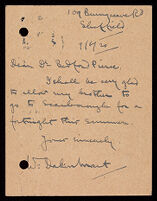 109 Burngreave Rd
Sheffield
9/6/20
Dear Dr Bedford Pierce,
I shall be very glad
to allow my brother to
go to Scarborough for a
fortnight this summer.
Yours sincerely